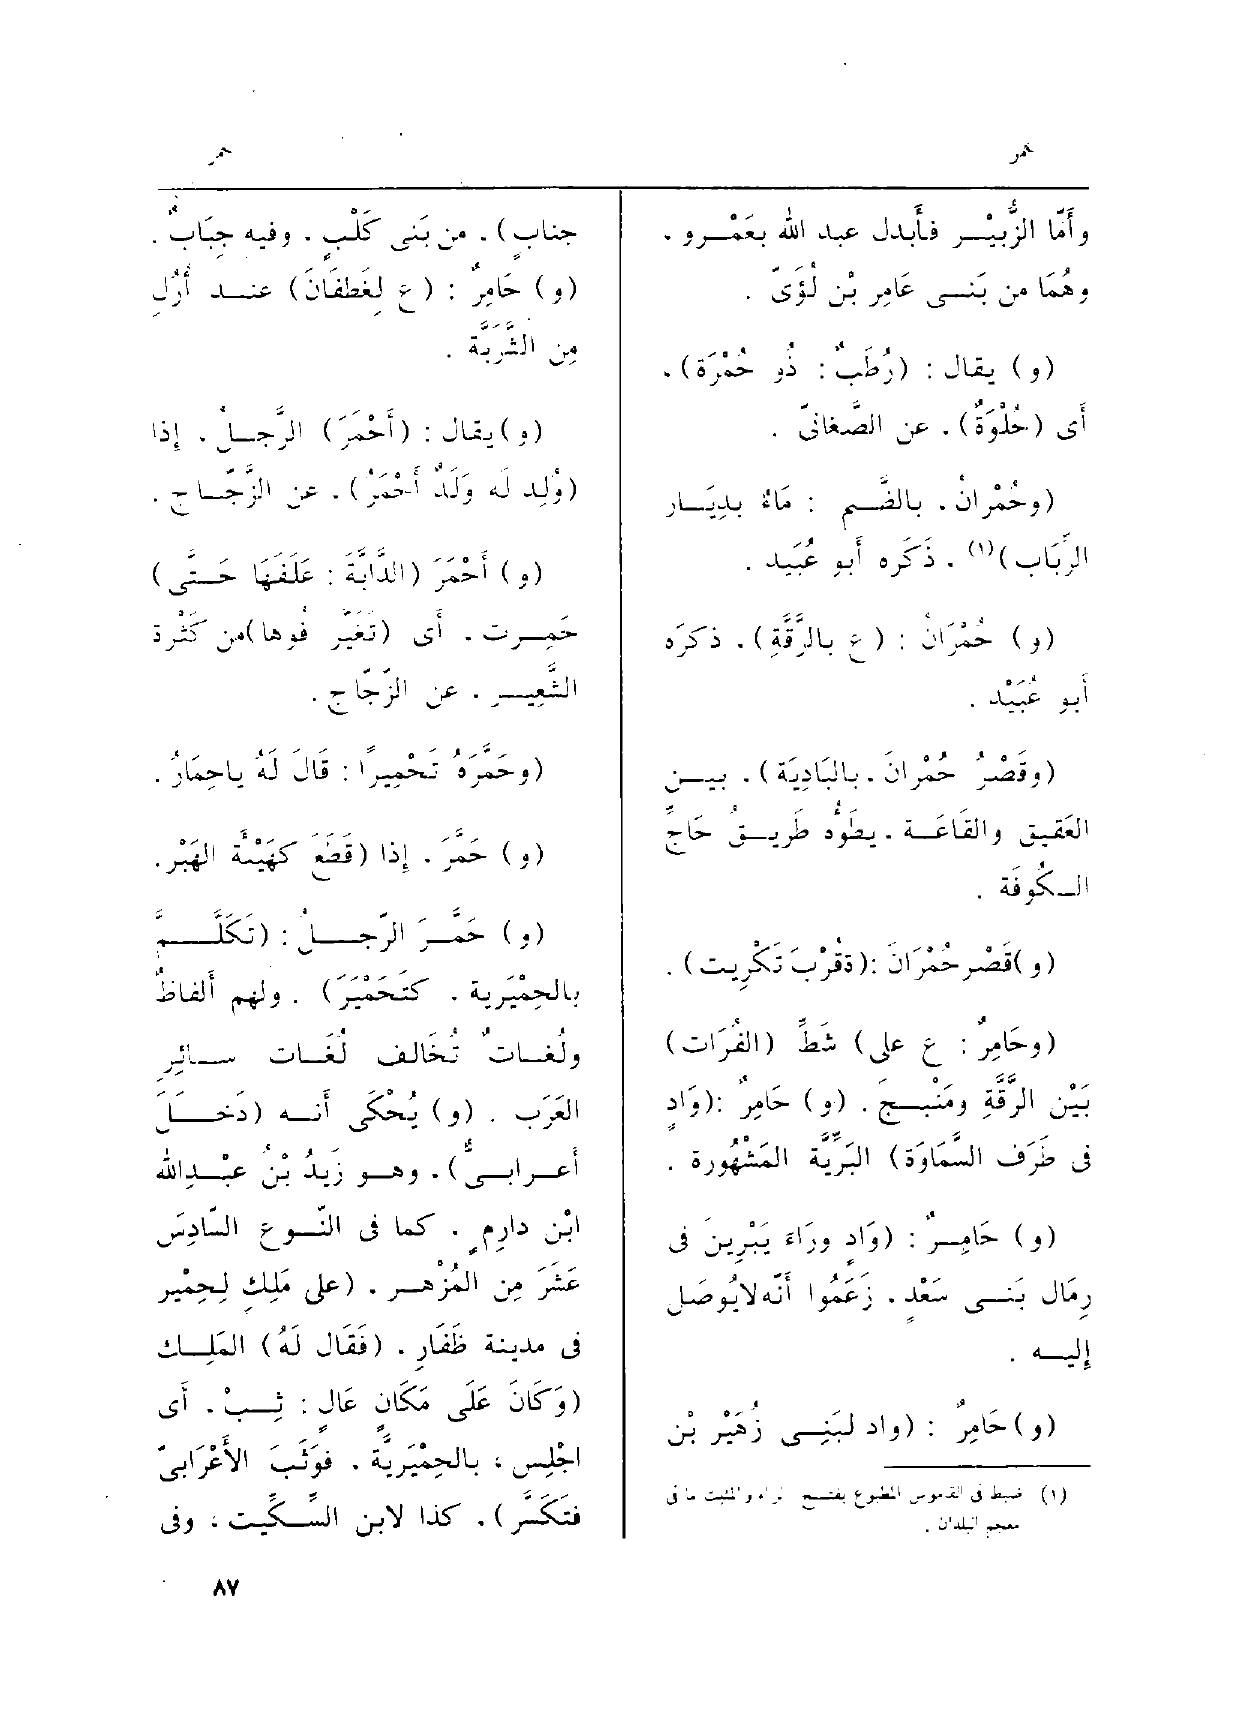 حمر
حمر
وأَمّا الزُّبَيْر فأَبدل عبد الله بعَمْرو ،
وهُمَا من بَنى عَامِر بْن لُؤَىّ .
(و) يقال : (رُطَبٌ : ذُو حُمْرَة) ،
أَى (حُلْوَةٌ) ، عن الصّغانىّ .
(وحُمْرانُ ، بالضَّم : مَاءٌ بدِيَار
الرِّبَاب)(١) ، ذَكَره أَبو عُبَيد .
(و) حُمْرَانُ : (ع بالرَّقَّةِ) ، ذكرَه
أَبو عُبَيْد .
(وقَصْرُ حُمْرانَ ، بالبَادِيَة) ، بين
العَقِيق والقَاعَة ، يطَؤُه طَرِيقُ حَاجِّ
الكُوفَة .
(و) قَصْر حُمْرَانَ : (ة قُرْبَ تَكْرِيت) .
(وحَامِرٌ : ع على) شَطِّ (الفُرَات)
بَيْن الرَّقَّةِ ومَنْبِج . (و) حَامِرٌ : (وَادٍ
فى طَرَف السَّمَاوَة) البَرِّيَّة المَشْهُورة .
(و) حَامِرٌ : (وَادٍ ورَاءَ يَبْرِينَ فى
رِمَال بَنى سَعْدٍ ، زَعَمُوا أَنّه لايُوصَل
إِليه .
(و) حَامِرٌ : (واد لبَنِى زُهَيْر بْن
(١) ضبط فى القاموس المطبوع بفتح الراء والمثبت ما فى
معجم البلدان .
جنابٍ) ، من بَنى كَلْبٍ ، وفيه جِبَابٌ .
(و) حَامِرٌ : (ع لِغَطفَانَ) عند أُرُلِ
مِن الشَّرَبَّة .
(و) يقال : (أَحْمَرَ) الرَّجلُ ، إِذا
(وُلِد لَه وَلَدٌ أَحْمَرُ) ، عن الزَّجّاج .
(و) أَحْمَرَ (الدَّابَّةَ : عَلَفَهَا حَتَّى)
حَمِرت ، أَى (تَغَيَّر فُوها) من كَثْرة
الشَّعِير ، عن الزّجّاج .
(وحَمَّرَهُ تَحْمِيرًا : قَالَ لَهُ ياحِمَارُ .
(و) حَمَّرَ ، إِذا (قَطَع كَهَيْئَة الهَبْر .
(و) حَمَّرَ الرّجلُ : (تَكَلَّم
بالحِمْيَرية ، كتَحَمْيَرَ) ، ولهم أَلفاظٌ
ولُغاتٌ تُخَالف لُغَات سائِر
العَرَب . (و) يُحْكَى أَنه (دَخَلَ
أَعرابىٌّ) ، وهو زَيدُ بْنُ عبْدِالله
ابْن دارِمٍ ، كما فى النّوع السّادِسَ
عَشَرَ مِن المُزْهر ، (على مَلِكٍ لِحِمْيَر
فى مدينة ظَفَارِ ، (فَقَال لَهُ) المَلِك
(وَكَانَ عَلَى مَكَانٍ عَالٍ : ثِبْ ، أَى
اجْلِس ، بالحِمْيَرِيَّة ، فوَثَبَ الأَعْرَابىّ
فتَكَسَّر) ، كذا لابن السِّكِّيت ، وفى
٨٧